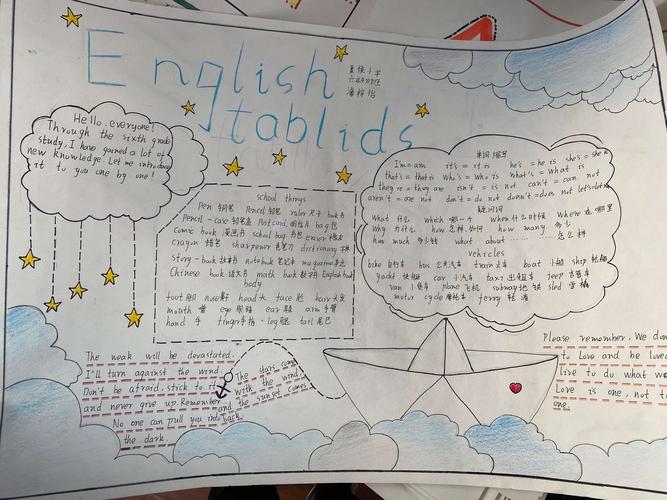 English
tablids
Hello. everyone!
Through the sixth grade
study, I have gained a lot of
new knowledge. Let me
it to you one by one!
school things
Pen 钢笔 Pencil 铅笔 ruler 尺子 book 书
Pencil-case 铅笔盒 Postcard 明信片 bag 包
Comic book 漫画书 school bag 书包 eraser 橡皮
crayon 蜡笔 sharpener dictionary
story-book 故事书 notebook 笔记本 magazine
Chinese book 语文书 math book 数学书 English book
body
foot 脚 nose 鼻子 head 头 face 脸 hair 头发
mouth 嘴 eye 眼睛 ear 耳朵 arm 手臂
hand 手 finger 手指 leg 腿 tail 尾巴
单词缩写
I'm=I am it's=it is he's=he is she's=she is
that's=that is who's=who is what's=what is
they're=they are isn't=is not can't=can not
aren't=are not don't=do not doesn't=does not let's=let us
疑问词
What 什么 which 哪一个 when 什么时候 Where 在哪里
Why 为什么 how 怎样,如何 how many 多少
how much 多少钱 what about 怎么样
vehicles
bike 自行车 bus 公共汽车 train 火车 boat 小船 ship 轮船
yacht 快艇 car 小汽车 taxi 出租车 jeep 吉普车
van 小货车 plane 飞机 subway 地铁 sled 雪橇
motor cycle 摩托车 ferry 轮渡
The weak will be devastated.
I'll turn against the wind.
Don't be afraid. stick to it
and never give up. Remember
No one can pull you into
the dark.
The stars come
with the wind,
and the sunset comes
back.
Please remember. We
to Love and be
live to do what
Love is one, not
one.